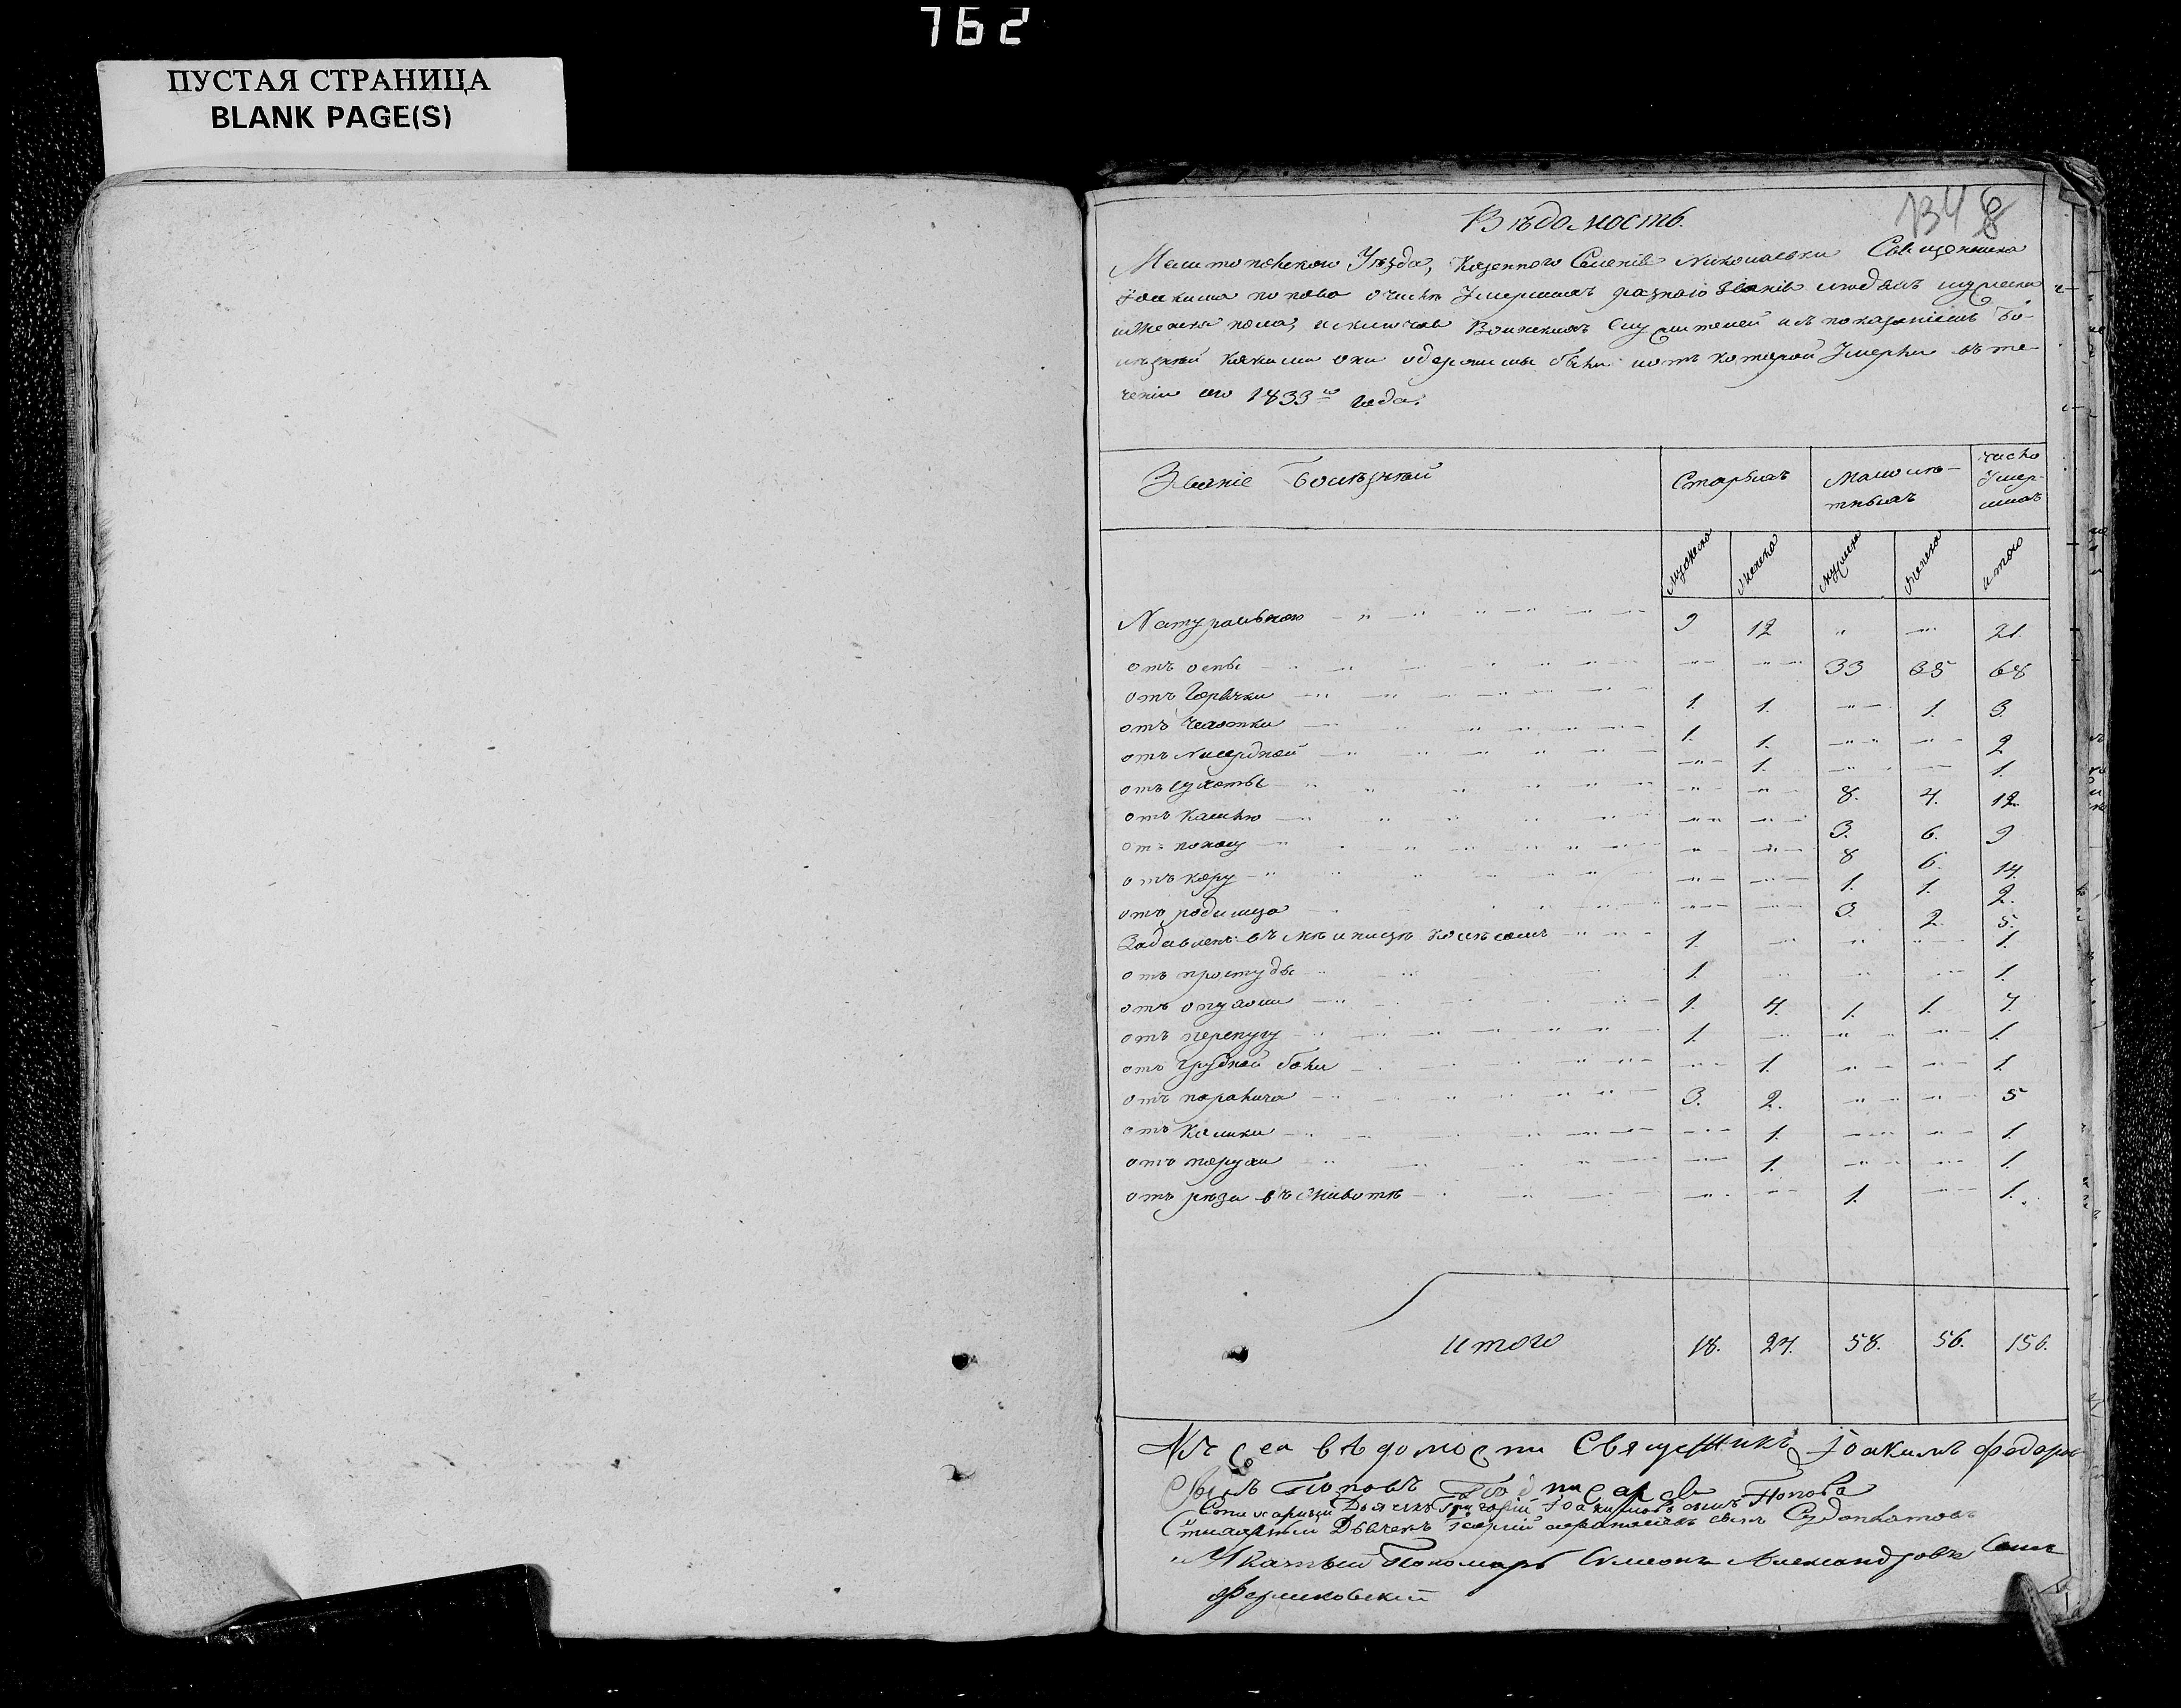 762
ПУСТАЯ СТРАНИЦА
BLANK PAGE(S)
1348
Вѣдомость.
Мелитопольскаго Уѣзда, Казенного Селенія Николаевки Священника
Іоакима Попова о числѣ Умершихъ разнаго званія людяхъ мужеска
и женска пола, исключая Воинскихъ Служителей и съ показаніемъ бо-
лѣзней какими они одержимы были и отъ которой Умерли въ те-
ченіи сего 1833го года.
Званіе Болѣзней Старыхъ Малолѣ- число
тныхъ Умер-
шихъ
мужеска женска мужеска женска итого
Натуральною 9 12 21.
отъ оспы 33 35 68
отъ Горячки 1. 1. 1. 3.
отъ Чахотки 1. 1. 2
отъ 1. 1.
отъ сухоты 8. 4. 12.
отъ Кашлю 3. 6. 9
отъ поносу 8 6. 14.
отъ кору 1. 1. 2.
отъ родимца 3. 2. 5.
Задавленъ въ мѣльницѣ колѣсомъ 1. 1.
отъ простуды 1. 1.
отъ опухоли 1. 4. 1. 1. 7.
отъ перепугу 1. 1.
отъ Грудной боли 1. 1.
отъ паралича 3. 2. 5
отъ Колики 1. 1.
отъ 1. 1.
отъ рѣзи въ животѣ 1. 1.
итого 18. 27. 58. 56. 156.
Къ сей вѣдомости Священникъ Іоакимъ Федоровъ
Сынъ Поповъ Подписался
Стихарный Дьячекъ Григорій Іоакимовъ сынъ Поповъ
Стихарный Дьячекъ сынъ
Указный Пономарь Симеонъ Александровъ Сынъ